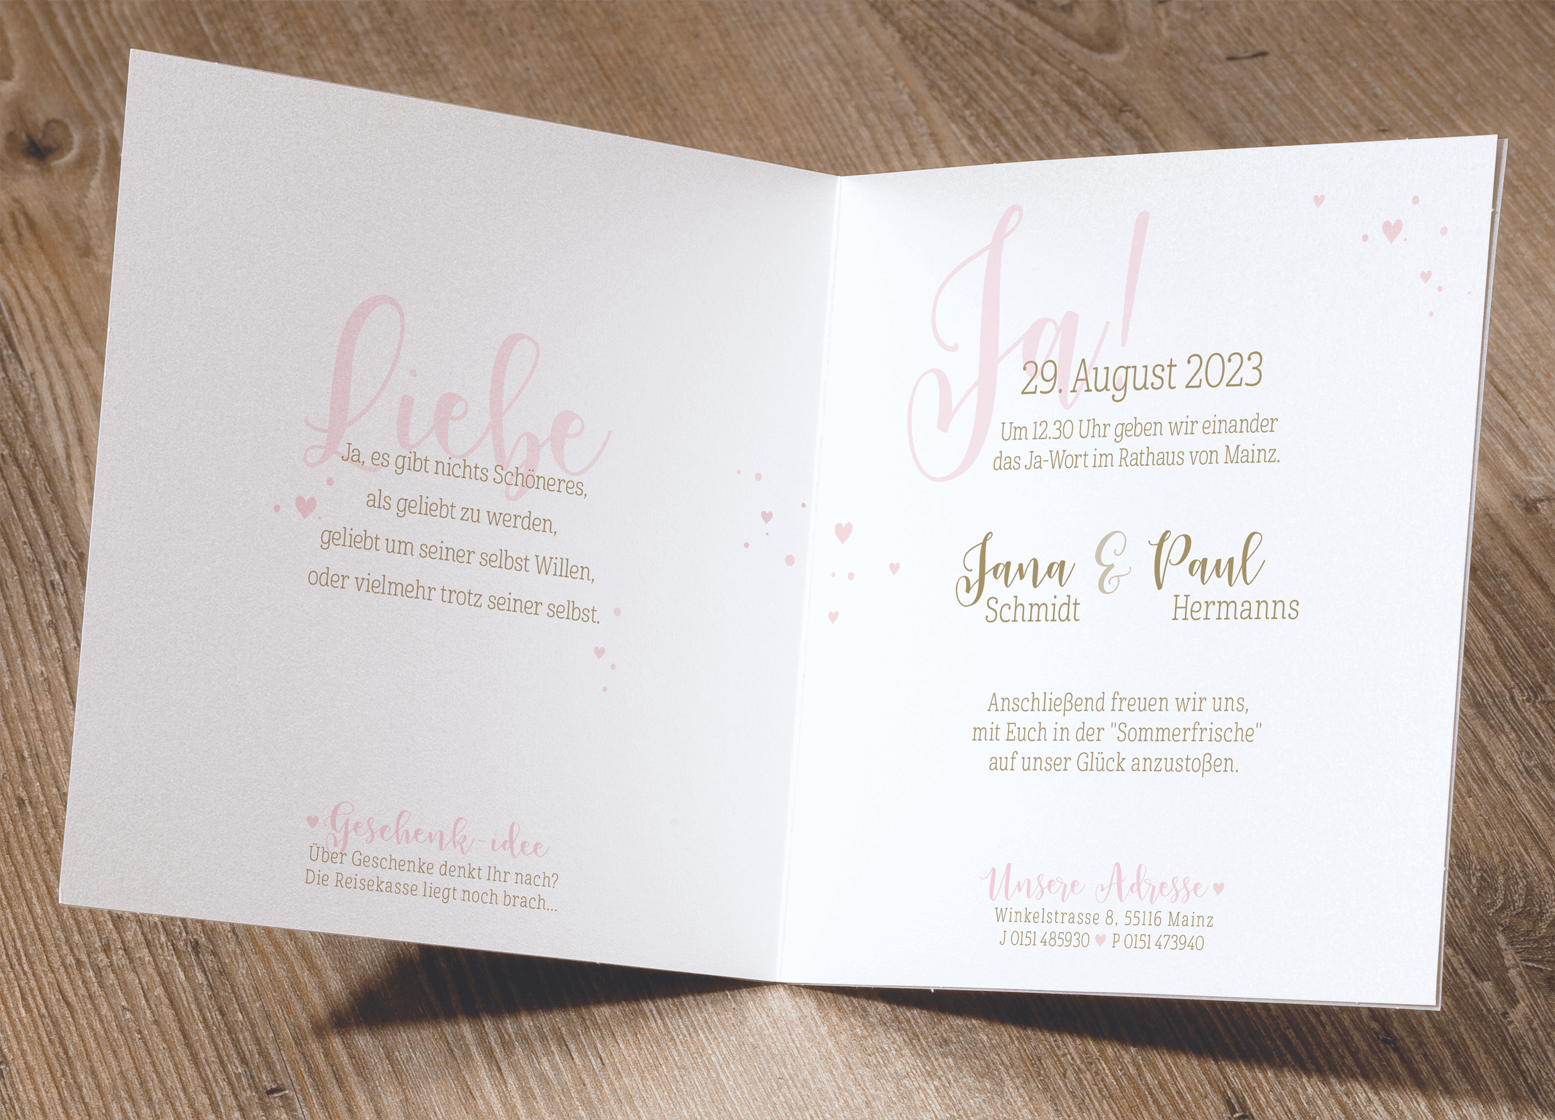 Liebe
Ja, es gibt nichts Schöneres,
als geliebt zu werden,
geliebt um seiner selbst Willen,
oder vielmehr trotz seiner selbst.
Geschenk-idee
Über Geschenke denkt Ihr nach?
Die Reisekasse liegt noch brach...
Ja!
29. August 2023
Um 12.30 Uhr geben wir einander
das Ja-Wort im Rathaus von Mainz.
Jana & Paul
Schmidt Hermanns
Anschließend freuen wir uns,
mit Euch in der "Sommerfrische"
auf unser Glück anzustoßen.
Unsere Adresse
Winkelstrasse 8, 55116 Mainz
J 0151 485930 ♥ P 0151 473940